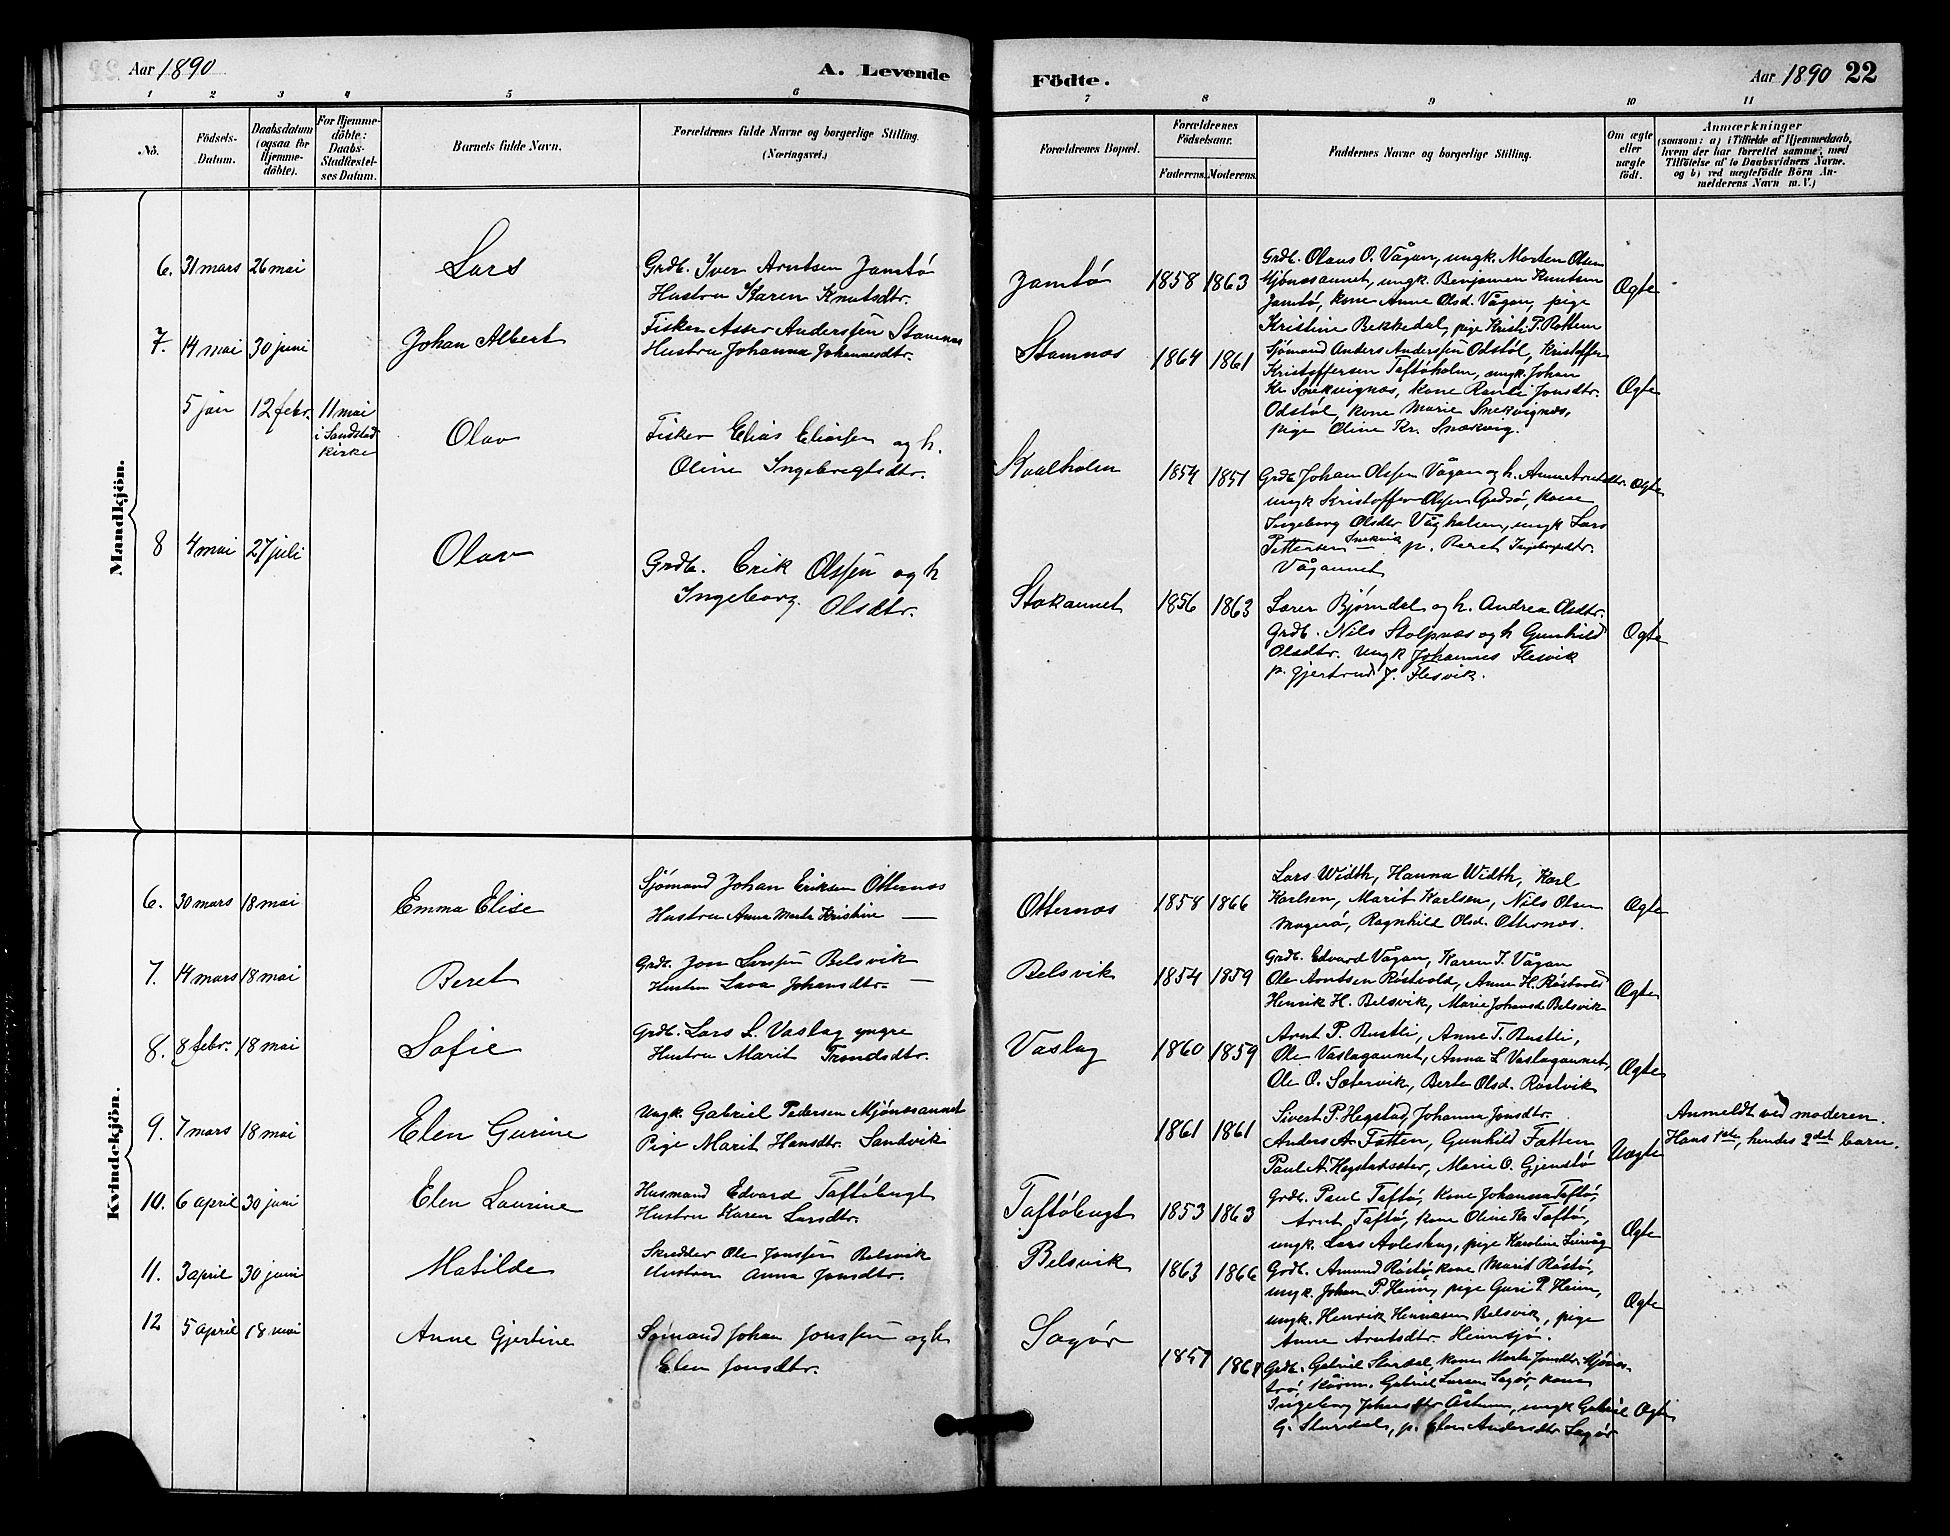 Aar 1890
A. Levende
Födte.
Aar 1890 22
1 2 3 4 5 6 7 8 9 10 11
No.
Födsels-
Datum.
Daabsdatum
(ogsaa for
Hjemme-
döbte).
For Hjemme-
döbte:
Daabs-
Stadfæstel-
ses Datum.
Barnets fulde Navn.
Forældrenes fulde Navne og borgerlige Stilling.
(Næringsvei.)
Forældrenes Bopæl.
Forældrenes
Födselsaar.
Faderens. Moderens.
Faddernes Navne og borgerlige Stilling.
Om ægte
eller
uægte
födt.
Anmærkninger
(saasom: a) i Tilfælde af Hjemmedaab,
hvem der har forrettet samme, med
Tilföielse af to Daabsvidners Navne.
og b) ved uægtefödte Börn An-
melderens Navn m. V.)
Mandkjön.
6. 31 mars 26 mai
Lars
Grdb. Iver Arntsen Jamtö
Hustru Karen Knutsdtr.
Jamtö
1858 1863
Grdb. Olaus O. Vågan, ungk. Morten Olsen
Mjönesaunet, ungk. Benjamen Knutsen
Jamtö, kone Anne Olsd. Vågan, pige
Kristine Bekkedal, pige Kristi P. Rottem
Ægte
7. 14 mai 30 juni
Johan Albert
Fisker Asser Anderssen Stamnæs
Hustru Johanna Johannesdtr.
Stamnæs
1864 1861
Sjömand Anders Anderssen Odstöl, Kristoffer
Kristoffersen Taftöholm, ungk. Johan
Kr. Snekvignæs, kone Randi Jonsdtr.
Odstöl, kone Marie Snekvignæs,
pige Oline Kr. Snækvig.
Ægte
5 jan 12 febr. 11 mai
i Sandstad
Kirke
Olav
Fisker Elias Eliassen og h.
Oline Ingebregtsdtr.
Kvalholm
1854 1851
Grdb Johan Olssen Vågan og h. Anne Arntsdtr.
ungk Kristoffer Olssen Gjedsö, kone
Ingeborg Olsdtr Vågholmen, ungk Lars
Pettersen Snekvik p. Beret Ingebrigtsdtr.
Vågaunet
Ægte
8 4 mai 27 juli
Olav
Grdb. Erik Olssen og h
Ingeborg Olsdtr.
Stokaunet
1856 1863
Lærer Bjørndal og h. Andrea Olsdtr.
Grdb. Nils Stolpnæs og h Gunhild
Olsdtr. Ungk Johannes Flesvik
p. Gjertrud J. Flesvik.
Ægte
Kvindekjön.
6. 30 mars 18 mai
Emma Elise
Sjömand Johan Eriksen Otternæs
Hustru Anna Marta Kristine —
Otternæs
1858 1866
Lars Width, Hanna Width, Karl
Karlsen, Marit Karlsen, Nils Olsen
Magerö, Ragnhild Olsd. Otternæs.
Ægte
7. 14 mars 18 mai
Beret
Grdb. Jon Larssen Belsvik
Hustru Sava Johansdtr. —
Belsvik
1854 1859
Grdb. Edvard Vågan, Karen J. Vågan
Ole Arntsen Röstvold, Anne H. Röstvold
Henrik H. Belsvik, Marie Johansd. Belsvik
Ægte
8. 8 febr. 18 mai
Sofie
Grdb. Lars L. Vaslag yngre
Hustru Marit Trondsdtr.
Vaslag
1860 1859
Arnt P. Rustli, Anne T. Rustli,
Ole Vaslagaunet, Anna L Vaslagaunet,
Ole O. Sætervik, Berte Olsd. Röstvik
Ægte
9. 7 mars 18 mai
Elen Gurine
Ungk. Gabriel Pedersen Mjönesaunet
Pige Marit Hansdtr. Sandvik
1861 1861
Sivert P. Hegstad, Johanna Jonsdtr.
Anders A. Fætten, Gunhild Fætten
Paul A. Hegstadsæter, Marie O. Gjenstö
Uægte
Anmeldt ved moderen.
Hans 1ste, hendes 2det barn.
10. 6 april 30 juni
Elen Laurine
Husmand Edvard Taftöbugt
Hustru Karen Larsdtr.
Taftöbugt
1853 1863
Grdb. Paul Taftö, kone Johanna Taftö,
Arnt Taftö, kone Oline Kr. Taftö,
ungk. Lars Avleshug, pige Karoline Lervåg
Ægte
11. 3 april 30 juni
Matilde
Skredder Ole Jonssen Belsvik
Hustru Anna Jonsdtr.
Belsvik
1863 1866
Grdb. Amund Röstö, kone Marit Röstö,
ungk. Johan P. Heim, pige Guri P. Heim,
ungk. Henrik Henriksen Belsvik, pige
Anne Arntsdtr. Heimsjö.
Ægte
12 5 april 18 mai
Anne Gjertine
Sømand Johan Jonssen og h
Elen Jonsdtr.
Sagør
1857
Grdb. Gabriel Stordal, kone Marta Jonsdtr. Mjönes-
Gabriel Larsen Sagør, kone
Ingeborg Johansdtr ungk Gabriel
G. Stordal, p. Elen Andersdtr Sagør
Ægte